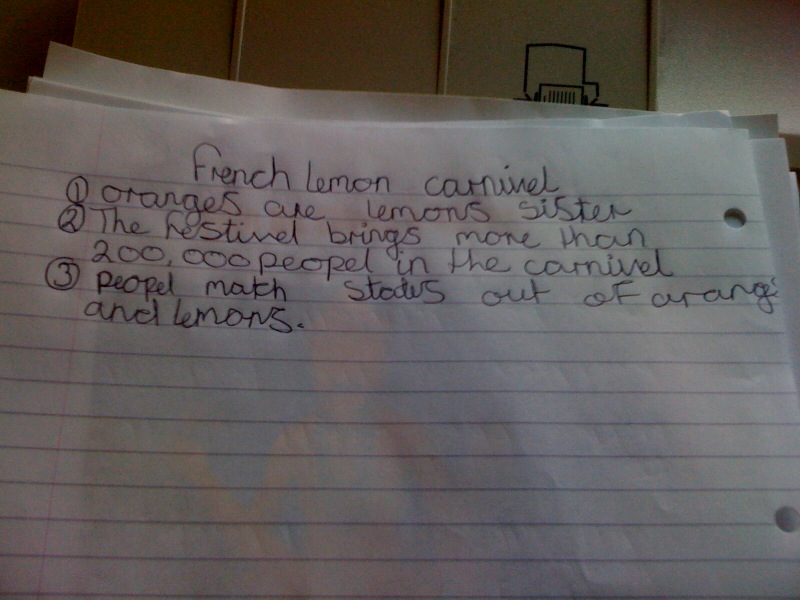 French lemon carnivel
① oranges are lemons sister
② The festivel brings more than
200,000 peopel in the carnivel
③ peopel makh out of orang
and lemons.